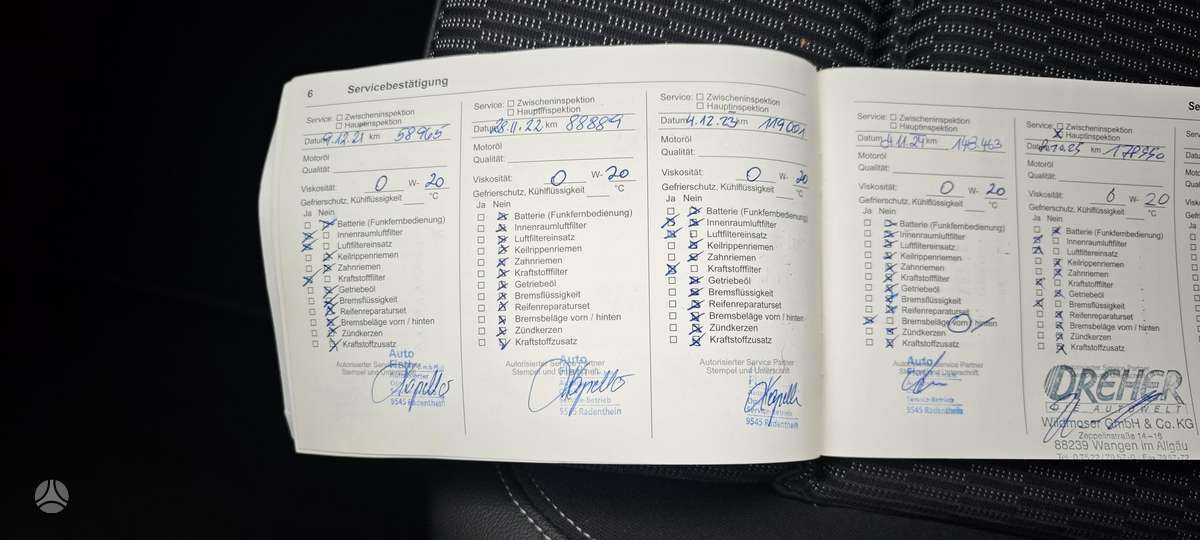 6 Servicebestätigung
Service: Zwischeninspektion
Hauptinspektion
Datum 9.12.21 km 58965
Motoröl
Qualität:
Viskosität: 0 W- 20
Gefrierschutz, Kühlflüssigkeit °C
Ja Nein
Batterie (Funkfernbedienung)
Innenraumluftfilter
Luftfiltereinsatz
Keilrippenriemen
Zahnriemen
Kraftstofffilter
Getriebeöl
Bremsflüssigkeit
Reifenreparaturset
Bremsbeläge vorn / hinten
Zündkerzen
Kraftstoffzusatz
Autorisierter Service Partner
Stempel und Unterschrift
Auto
9545 Radenthein
Service: Zwischeninspektion
Hauptinspektion
Datum 28.11.22 km 88889
Motoröl
Qualität:
Viskosität: 0 W- 20
Gefrierschutz, Kühlflüssigkeit °C
Ja Nein
Batterie (Funkfernbedienung)
Innenraumluftfilter
Luftfiltereinsatz
Keilrippenriemen
Zahnriemen
Kraftstofffilter
Getriebeöl
Bremsflüssigkeit
Reifenreparaturset
Bremsbeläge vorn / hinten
Zündkerzen
Kraftstoffzusatz
Autorisierter Service Partner
Stempel und Unterschrift
Auto
Service-Betrieb
9545 Radenthein
Service: Zwischeninspektion
Hauptinspektion
Datum 4.12.23 km 119001
Motoröl
Qualität:
Viskosität: 0 W- 20
Gefrierschutz, Kühlflüssigkeit °C
Ja Nein
Batterie (Funkfernbedienung)
Innenraumluftfilter
Luftfiltereinsatz
Keilrippenriemen
Zahnriemen
Kraftstofffilter
Getriebeöl
Bremsflüssigkeit
Reifenreparaturset
Bremsbeläge vorn / hinten
Zündkerzen
Kraftstoffzusatz
Autorisierter Service Partner
Stempel und Unterschrift
Service-Betrieb
9545 Radenthein
Se
Service: Zwischeninspektion
Hauptinspektion
Datum 4.11.24 km 148.463
Motoröl
Qualität:
Viskosität: 0 W- 20
Gefrierschutz, Kühlflüssigkeit °C
Ja Nein
Batterie (Funkfernbedienung)
Innenraumluftfilter
Luftfiltereinsatz
Keilrippenriemen
Zahnriemen
Kraftstofffilter
Getriebeöl
Bremsflüssigkeit
Reifenreparaturset
Bremsbeläge vorn / hinten
Zündkerzen
Kraftstoffzusatz
Service Partner
Unterschrift
Auto
Service-Betrieb
9545 Radenthein
Service: Zwischeninspektion
Hauptinspektion
Datum km
Motoröl
Qualität:
Viskosität: 0 W- 20
Gefrierschutz, Kühlflüssigkeit °C
Ja Nein
Batterie (Funkfernbedienung)
Innenraumluftfilter
Luftfiltereinsatz
Keilrippenriemen
Zahnriemen
Kraftstofffilter
Getriebeöl
Bremsflüssigkeit
Reifenreparaturset
Bremsbeläge vorn / hinten
Zündkerzen
Kraftstoffzusatz
DREHER
DIE AUTOWELT
Wildmoser GmbH & Co. KG
Zeppelinstraße 14-16
88239 Wangen im Allgäu